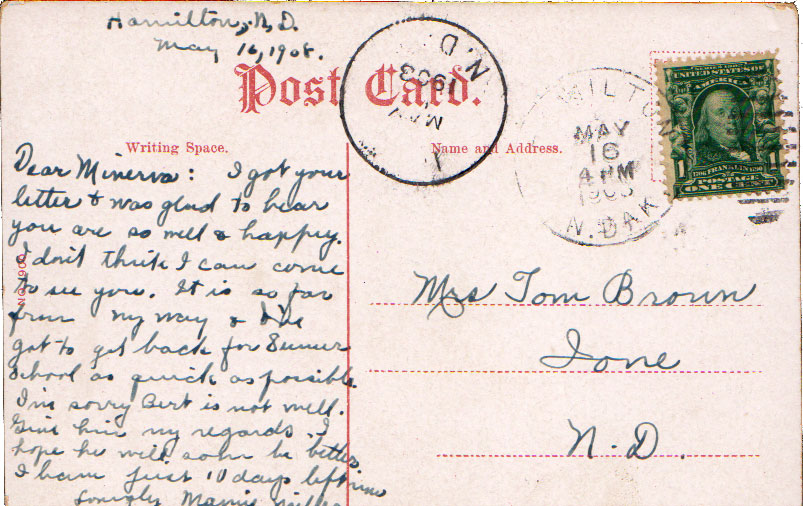 Hamilton, N.D.
May 16, 1908.
Post Card.
N. D.
1908
MAY
MILTON
MAY
16
4 PM
1908
N. DAK.
SERIES 1902
UNITED STATES OF
AMERICA
1706 FRANKLIN 1790
1 POSTAGE 1
ONE CENT
Writing Space.
Name and Address.
Dear Minerva: I got your
letter & was glad to hear
you are so well & happy.
I don't think I can come
to see you. It is so far
from my way & I've
got to get back for Summer
School as quick as possible.
I'm sorry Bert is not well.
Give him my regards. I
hope he will soon be better.
I have just 10 days left now
Lovingly Mamie
NO. 1900
Mrs Tom Brown
Ione
N. D.